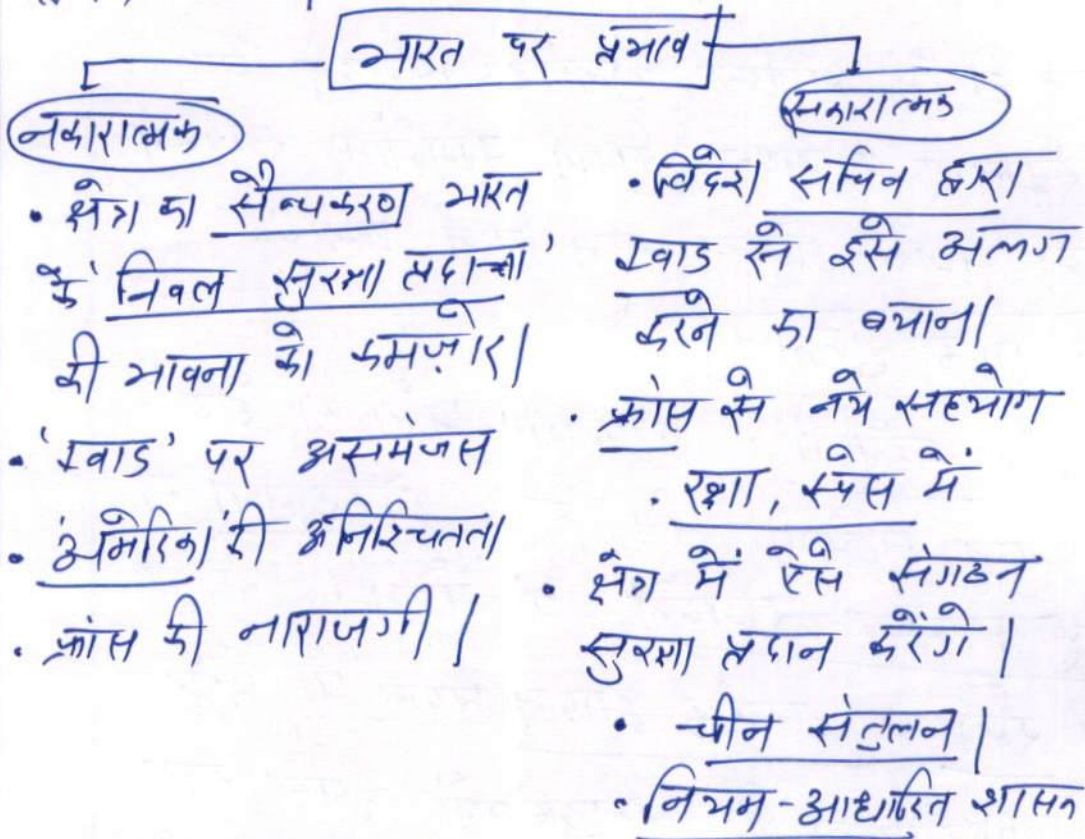 भारत पर प्रभाव
नकारात्मक
• क्षेत्र का सैन्यकरण भारत
के 'निवल सुरक्षा प्रदाता'
की भावना को कमज़ोर।
• 'क्वाड' पर असमंजस
• अमेरिका की अनिश्चितता
• फ्रांस की नाराजगी।
सकारात्मक
• विदेश सचिव द्वारा
क्वाड से इसे अलग
करने का बयान।
• फ्रांस से नये सहयोग
• रक्षा, स्पेस में
• क्षेत्र में ऐसे संगठन
सुरक्षा प्रदान करेंगे।
• चीन संतुलन।
• नियम-आधारित शासन